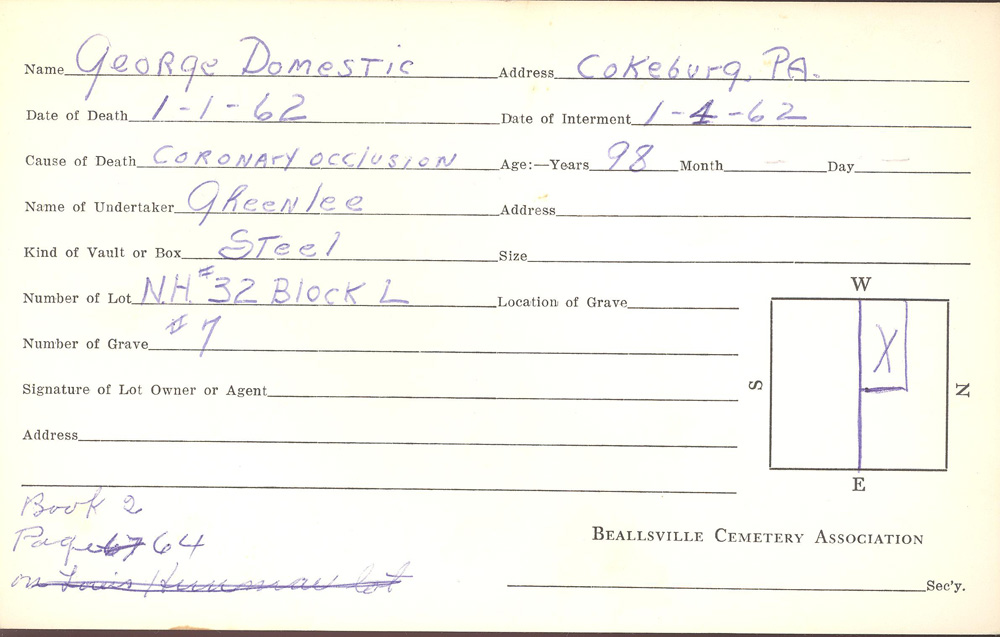 Name George Domestic Address Cokeburg, PA.
Date of Death 1-1-62 Date of Interment 1-4-62
Cause of Death Coronary Occlusion Age:—Years 98 Month — Day —
Name of Undertaker Greenlee Address
Kind of Vault or Box Steel Size
Number of Lot N.H. #32 Block L Location of Grave
Number of Grave #7
Signature of Lot Owner or Agent
Address
W
S
X
N
E
Book 2
Page 67 64
on Louis lot
BEALLSVILLE CEMETERY ASSOCIATION
Sec'y.